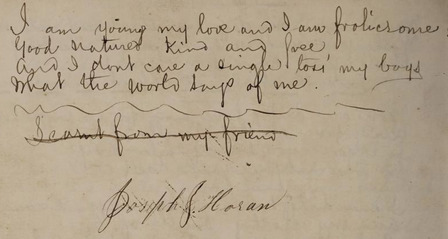 I am young my love and I am frolicsome
Good natured kind and free
And I dont care a single toss my boys
What the world says of me.
I camt from my friend
Joseph J. Horan